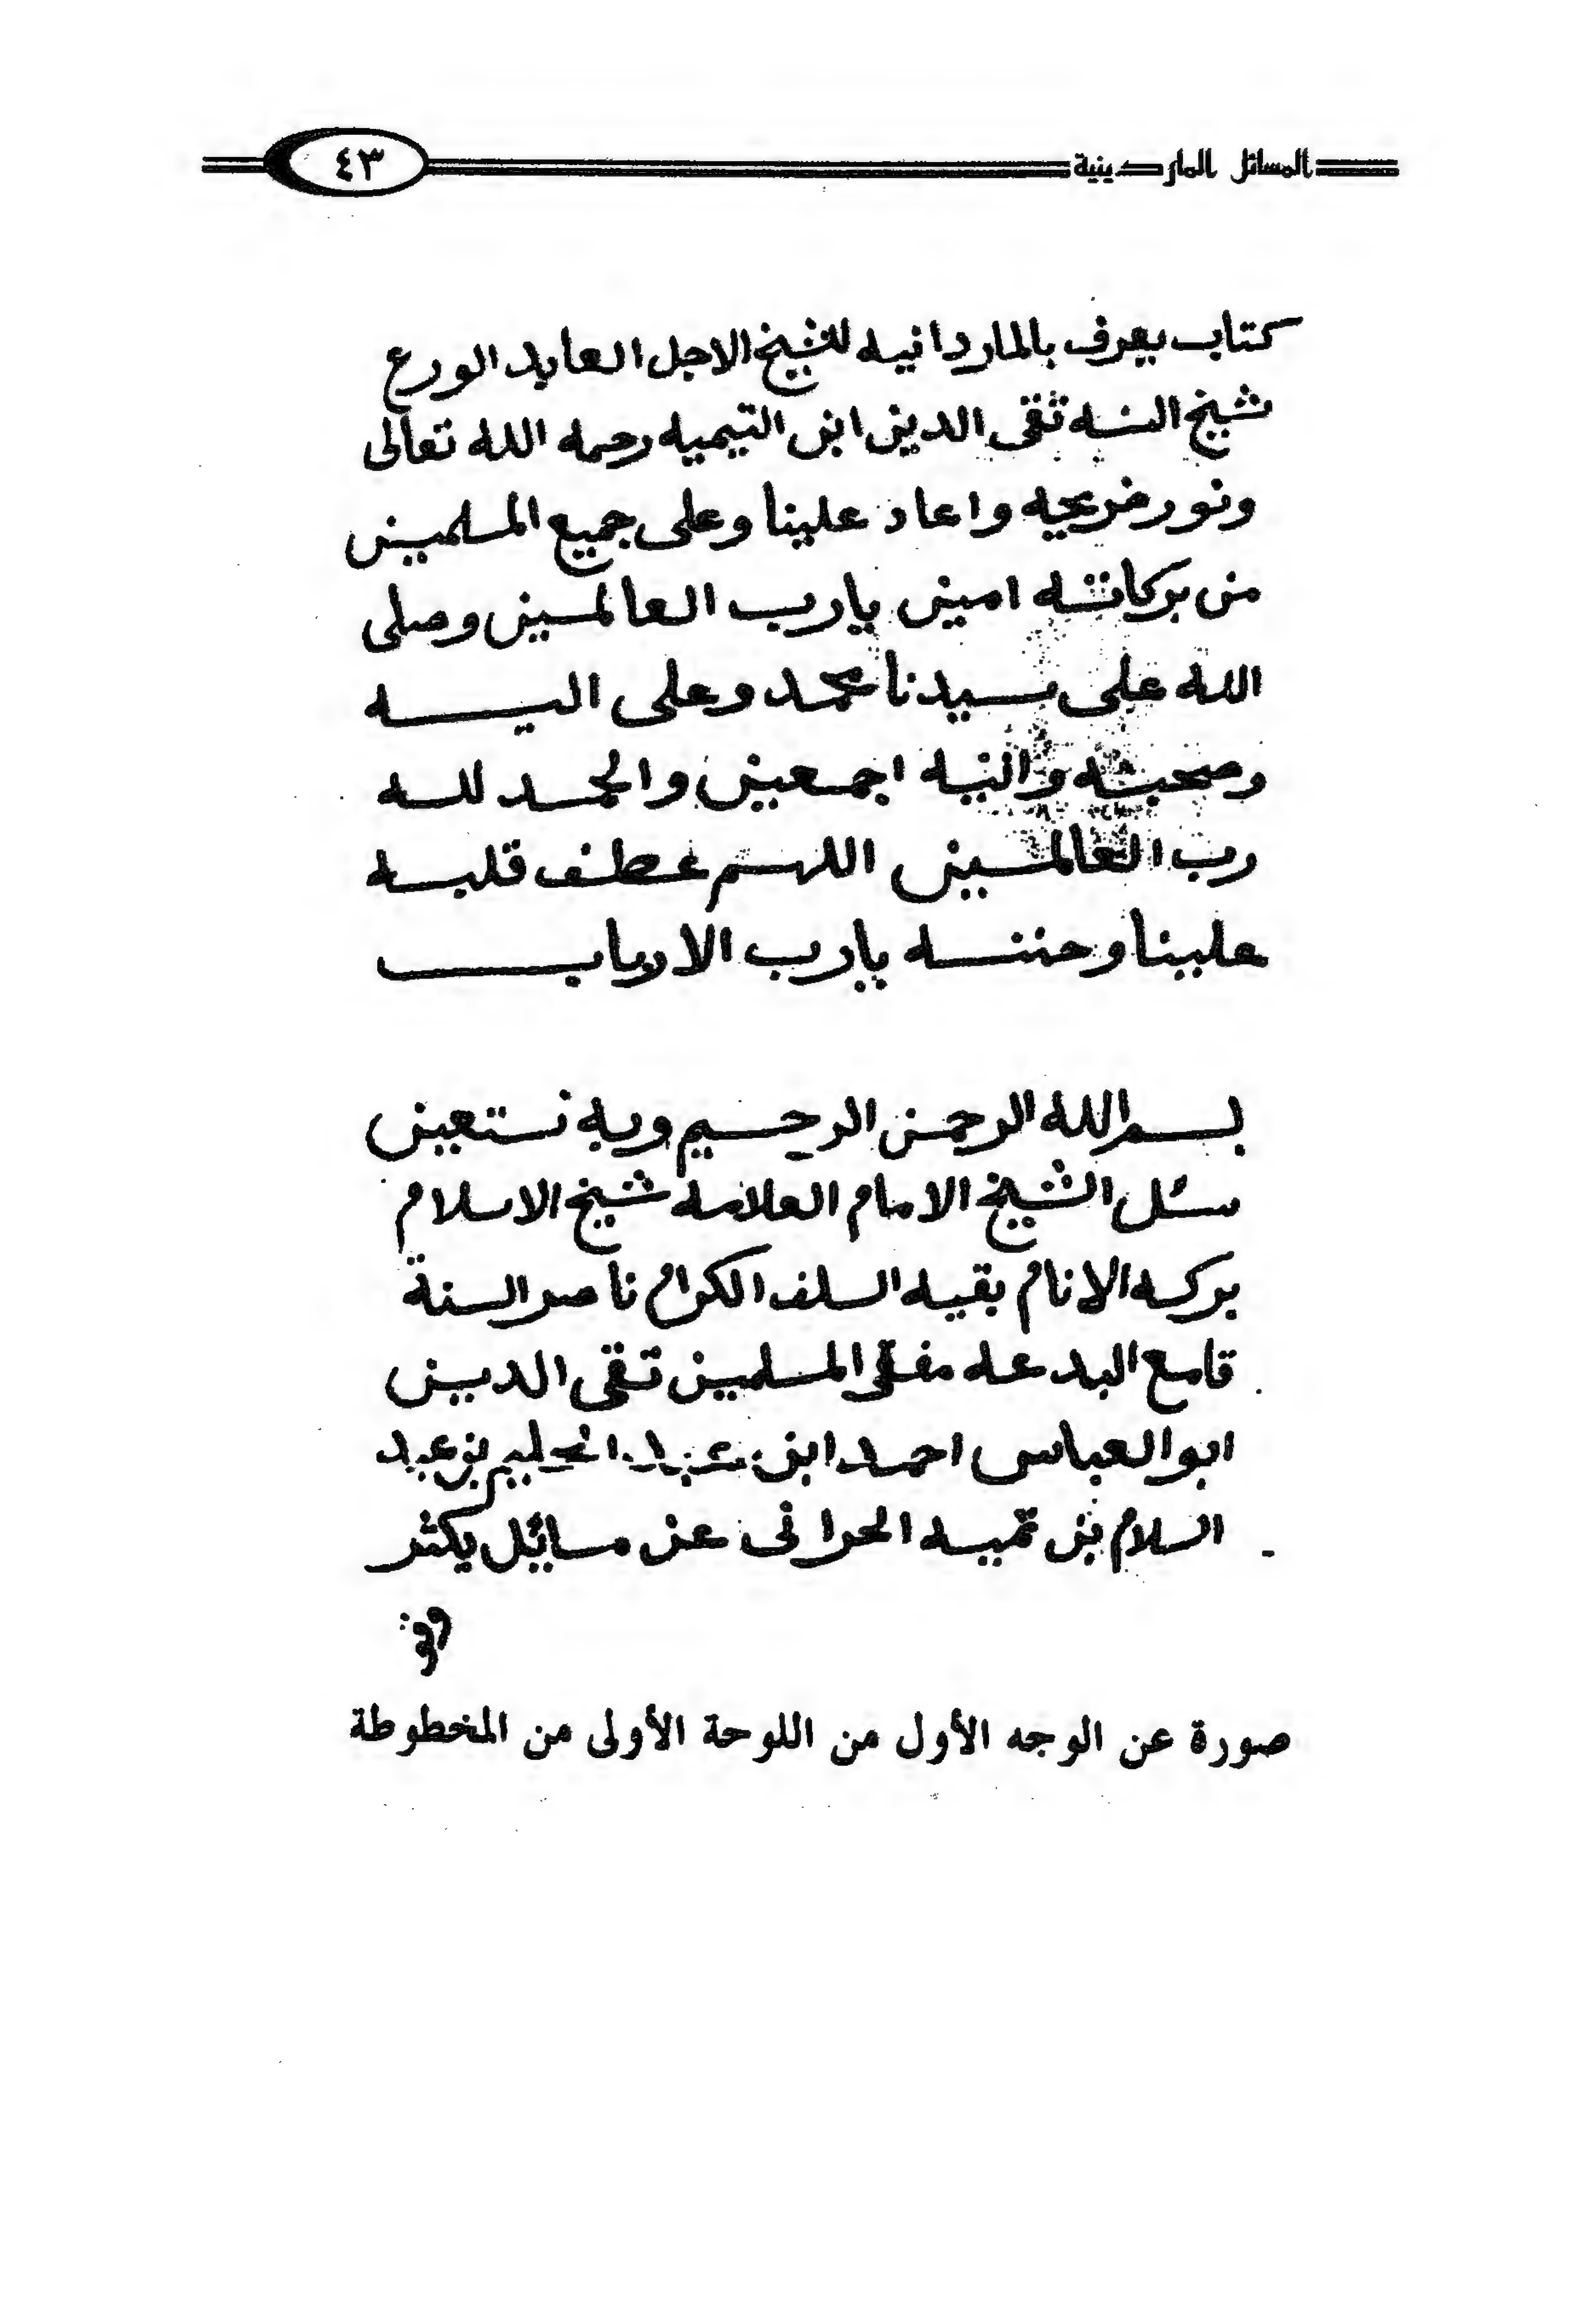 المسائل الماردينية ٤٣
كتاب يعرف بالماردانيه للشيخ الاجل العابد الورع
شيخ السنه تقى الدين ابن التيميه رحمه الله تعالى
ونور ضريحه واعاد علينا وعلى جميع المسلمين
من بركاته امين يارب العالمين وصلى
الله على سيدنا محمد وعلى اليه
وصحبته اجمعين والحمد لله
رب العالمين اللهم عطف قلبه
علينا وحننه يارب الارباب
بسم الله الرحمن الرحيم وبه نستعين
سئل الشيخ الامام العلامه شيخ الاسلام
بركه الانام بقيه السلف الكرام ناصر السنة
قامع البدعه مفتى المسلمين تقى الدين
ابو العباس احمد ابن عبد الحليم بن عبد
السلام بن تميه الحرانى عن مسائل يكثر
صورة عن الوجه الأول من اللوحة الأولى من المخطوطة